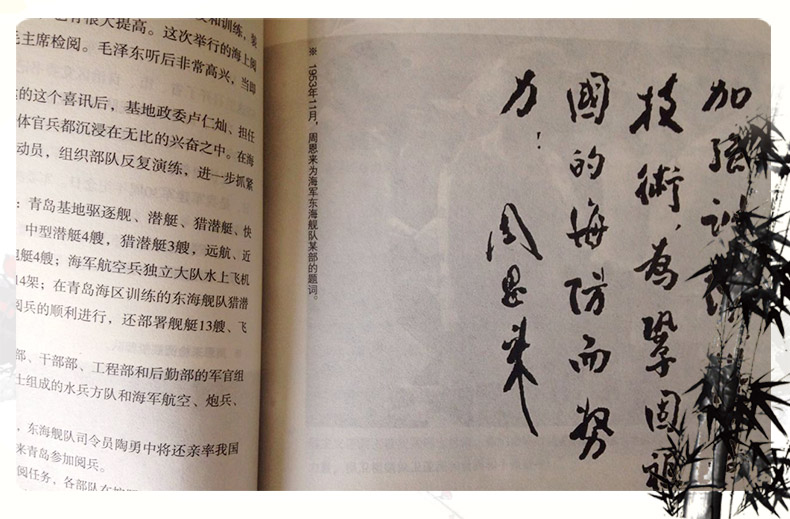 和训练，装
也有很大提高。这次举行的海上阅
毛主席检阅。毛泽东听后非常高兴，当即
的这个喜讯后，基地政委卢仁灿、担任
体官兵都沉浸在无比的兴奋之中。在海
动员，组织部队反复演练，进一步抓紧
：青岛基地驱逐舰、潜艇、猎潜艇、快
中型潜艇4艘，猎潜艇3艘，远航、近
艇4艘；海军航空兵独立大队水上飞机
14架；在青岛海区训练的东海舰队猎潜
阅兵的顺利进行，还部署舰艇13艘、飞
部、干部部、工程部和后勤部的军官组
士组成的水兵方队和海军航空、炮兵、
，东海舰队司令员陶勇中将还亲率我国
来青岛参加阅兵。
阅任务，各部队在
※ 1953年11月，周恩来为海军东海舰队某部的题词。
加强训
技術，為鞏固祖
國的海防而努
力！
周恩来